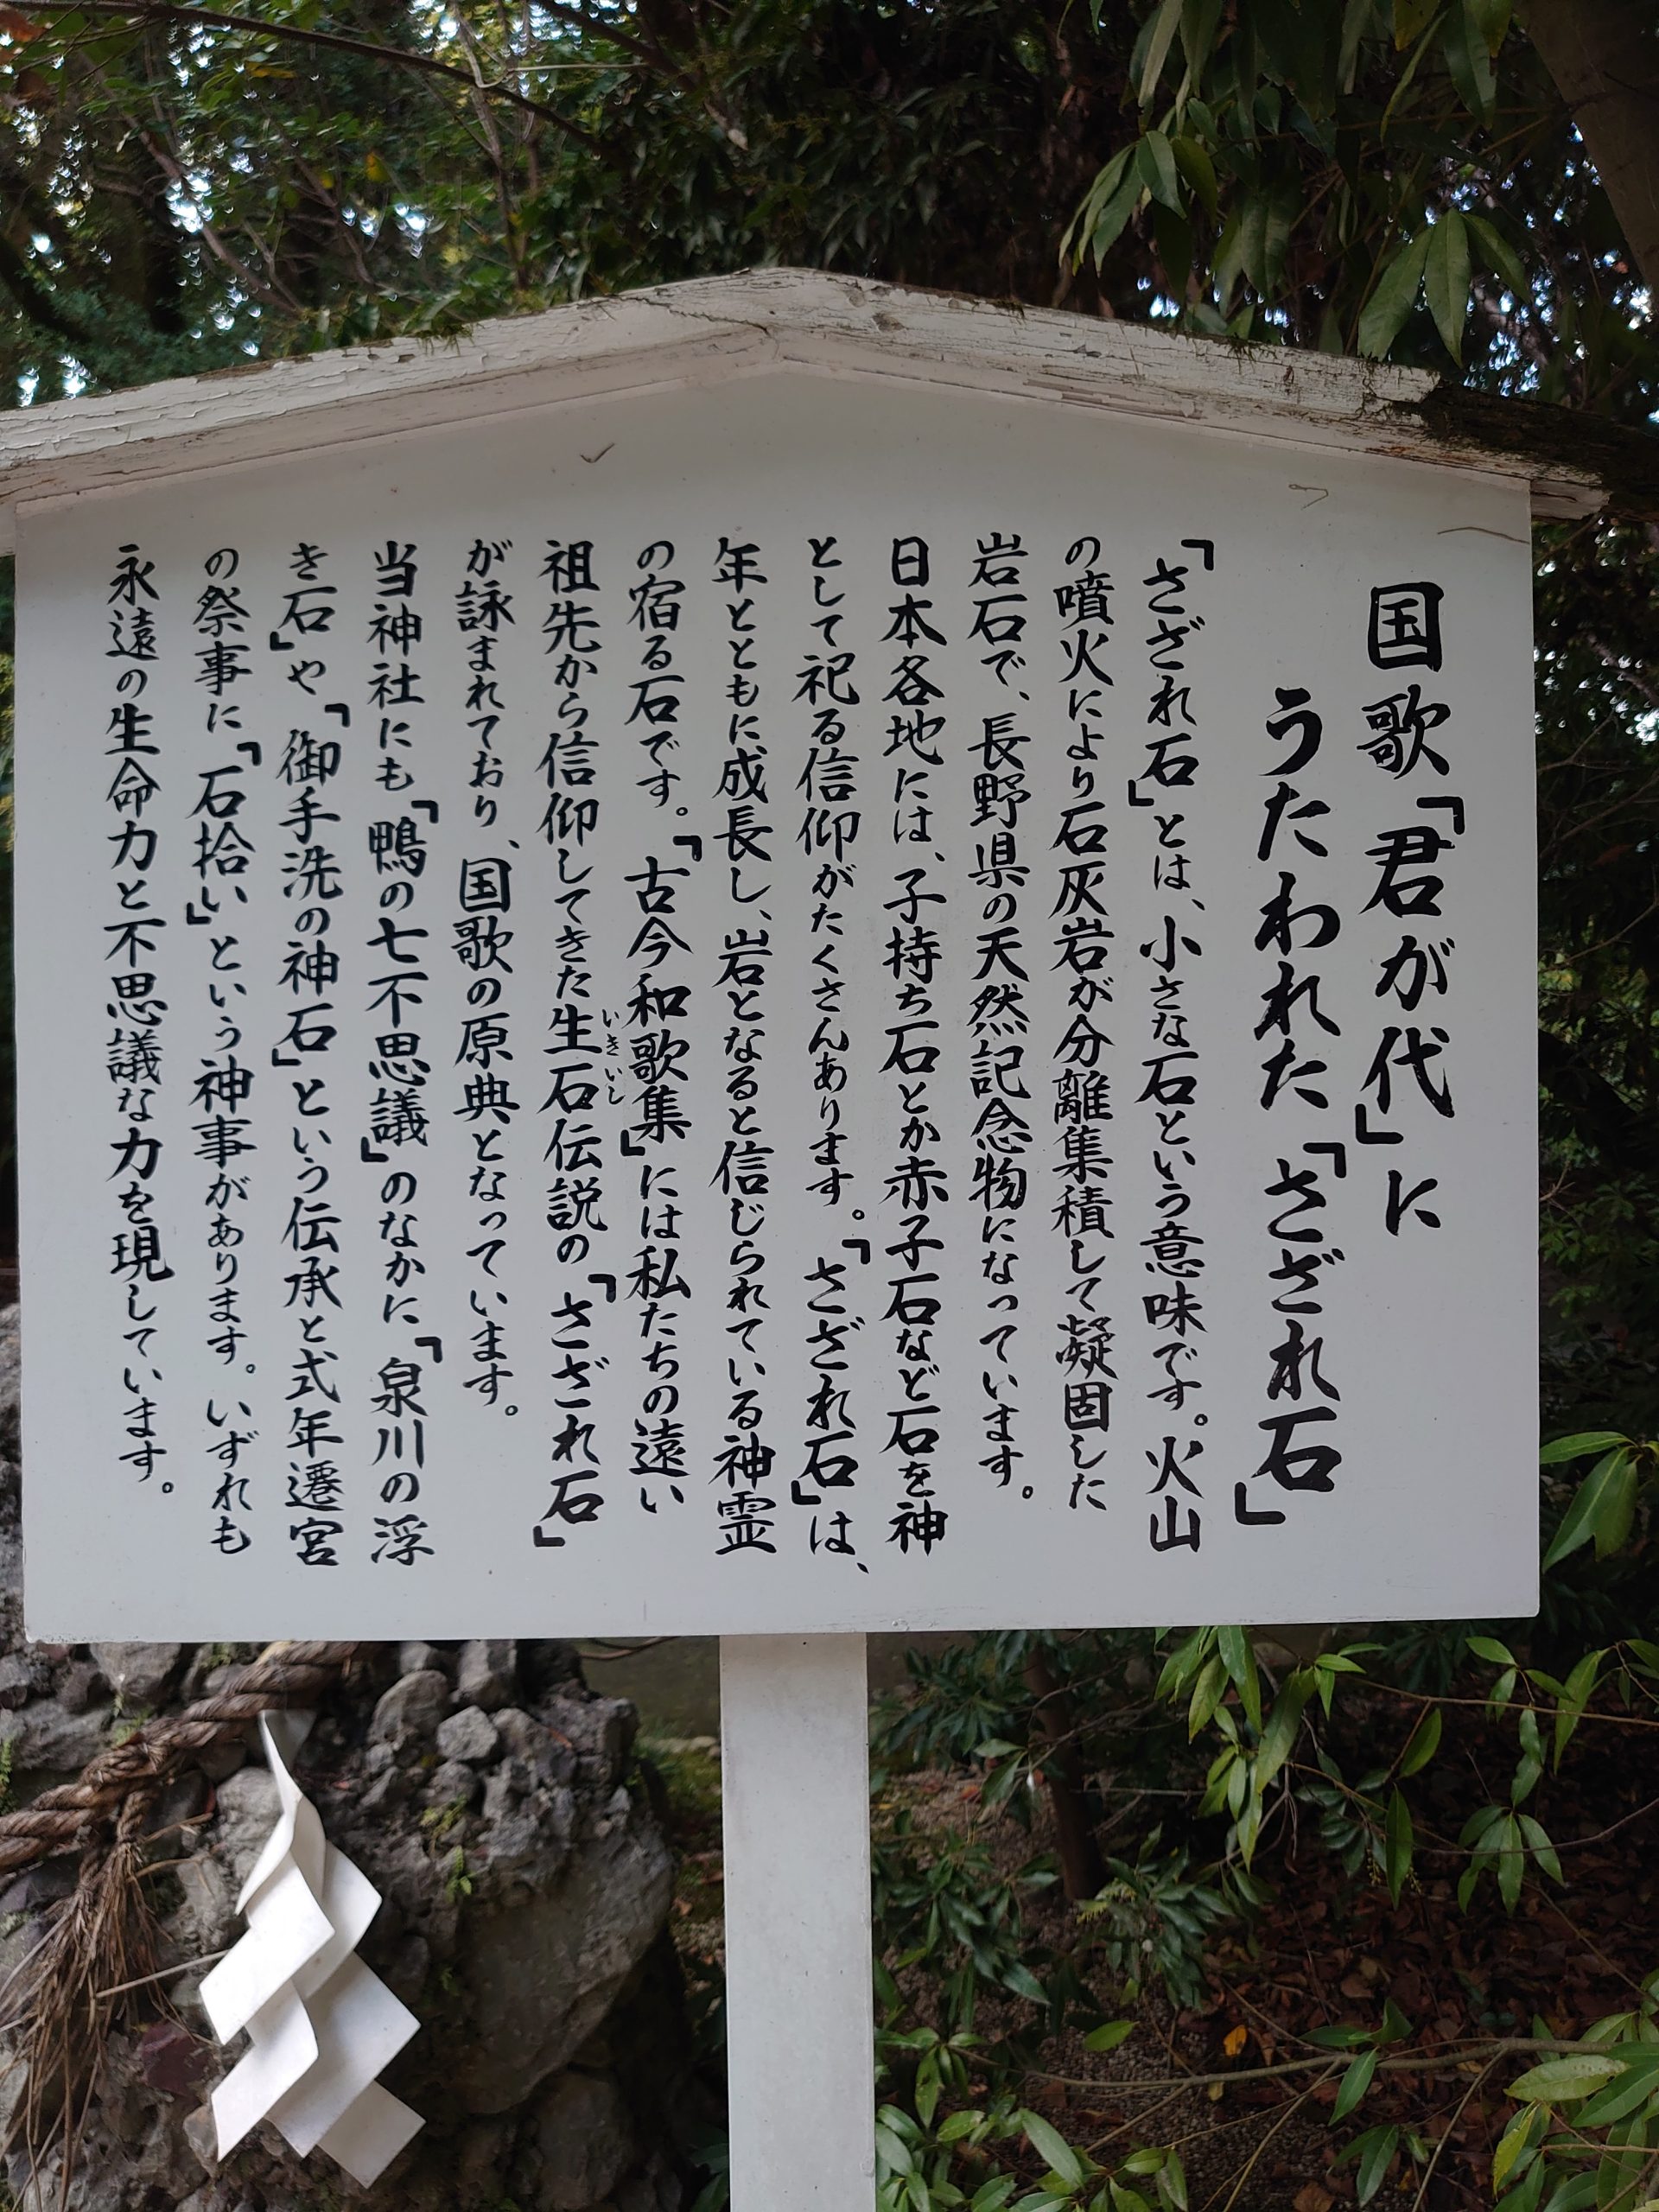 国歌「君が代」に
うたわれた「さざれ石」
「さざれ石」とは、小さな石という意味です。火山
の噴火により石灰岩が分離集積して凝固した
岩石で、長野県の天然記念物になっています。
日本各地には、子持ち石とか赤子石など石を神
として祀る信仰がたくさんあります。「さざれ石」は、
年とともに成長し、岩となると信じられている神霊
の宿る石です。「古今和歌集」には私たちの遠い
いきいし
祖先から信仰してきた生石伝説の「さざれ石」
が詠まれており、国歌の原典となっています。
当神社にも「鴨の七不思議」のなかに「泉川の浮
き石」や、「御手洗の神石」という伝承と式年遷宮
の祭事に「石拾い」という神事があります。いずれも
永遠の生命力と不思議な力を現しています。